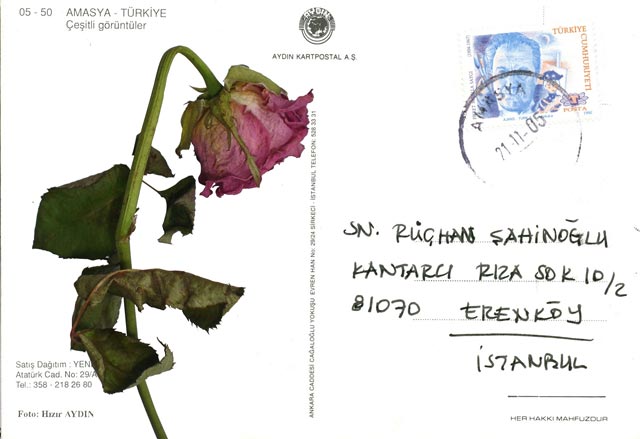 05 - 50 AMASYA - TÜRKİYE
Çeşitli görüntüler
AYDIN
AYDIN KARTPOSTAL A.Ş.
TÜRKİYE
CUMHURİYETİ
POSTA
AMASYA
21-11-05
ANKARA CADDESİ CAĞALOĞLU YOKUŞU EVREN HAN No: 29/24 SİRKECİ - İSTANBUL TELEFON: 528 33 31
SN. RÜÇHAN ŞAHİNOĞLU
KANTARCI RIZA SOK 10/2
81070 ERENKÖY
İSTANBUL
Satış Dağıtım : YENİ
Atatürk Cad. No: 29/A
Tel.: 358 - 218 26 80
Foto: Hızır AYDIN
HER HAKKI MAHFUZDUR